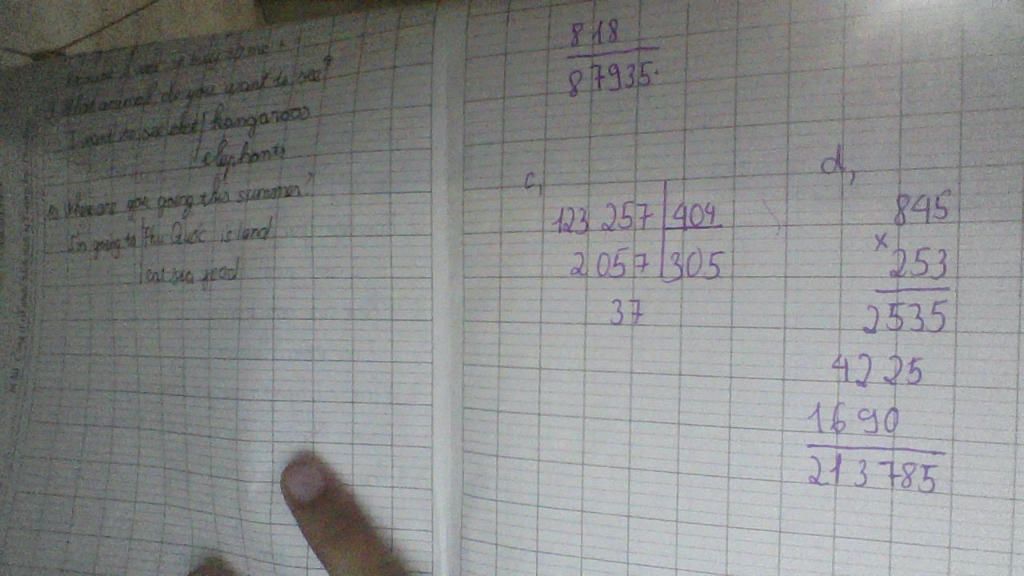 What animal do you want to see?
I want to see kangaroos
elephants
Where are you going this summer?
I'm going to Phu Quoc island
eat sea food
818
87935.
c,
123 257 404
2 057 305
37
d,
845
x
253
2535
4225
1690
213 785